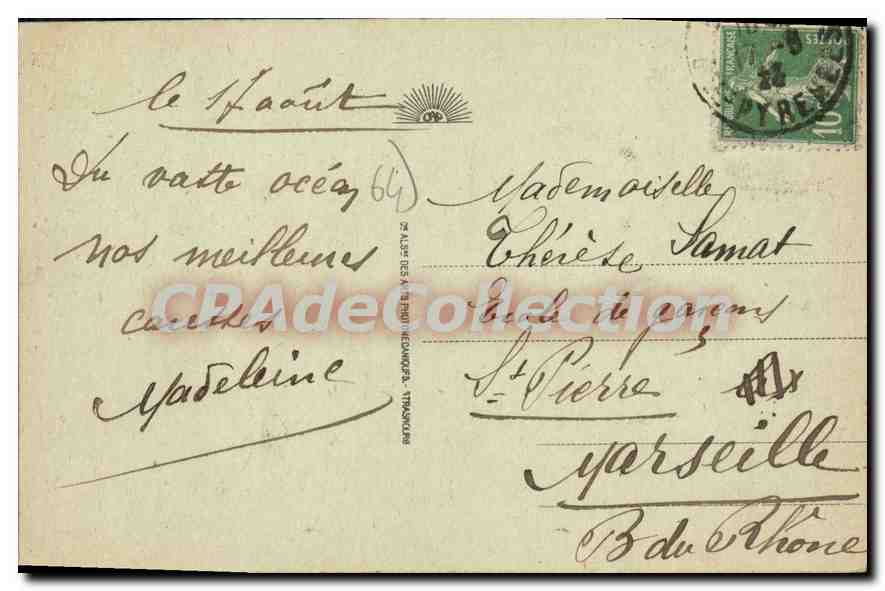 le 17 août
CAP
Du vaste océan
nos meilleures
caresses
Madeleine
64
Cie ALSne DES ARTS PHOTOMECANIQUES.- STRASBOURG
Mademoiselle
Thérèse Samat
École de garçons
St Pierre
Marseille
B du Rhône
FRANÇAISE
POSTES
10
22
PYRENEES
CPAdeCollection